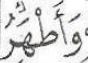 وَأَطْهَرُ